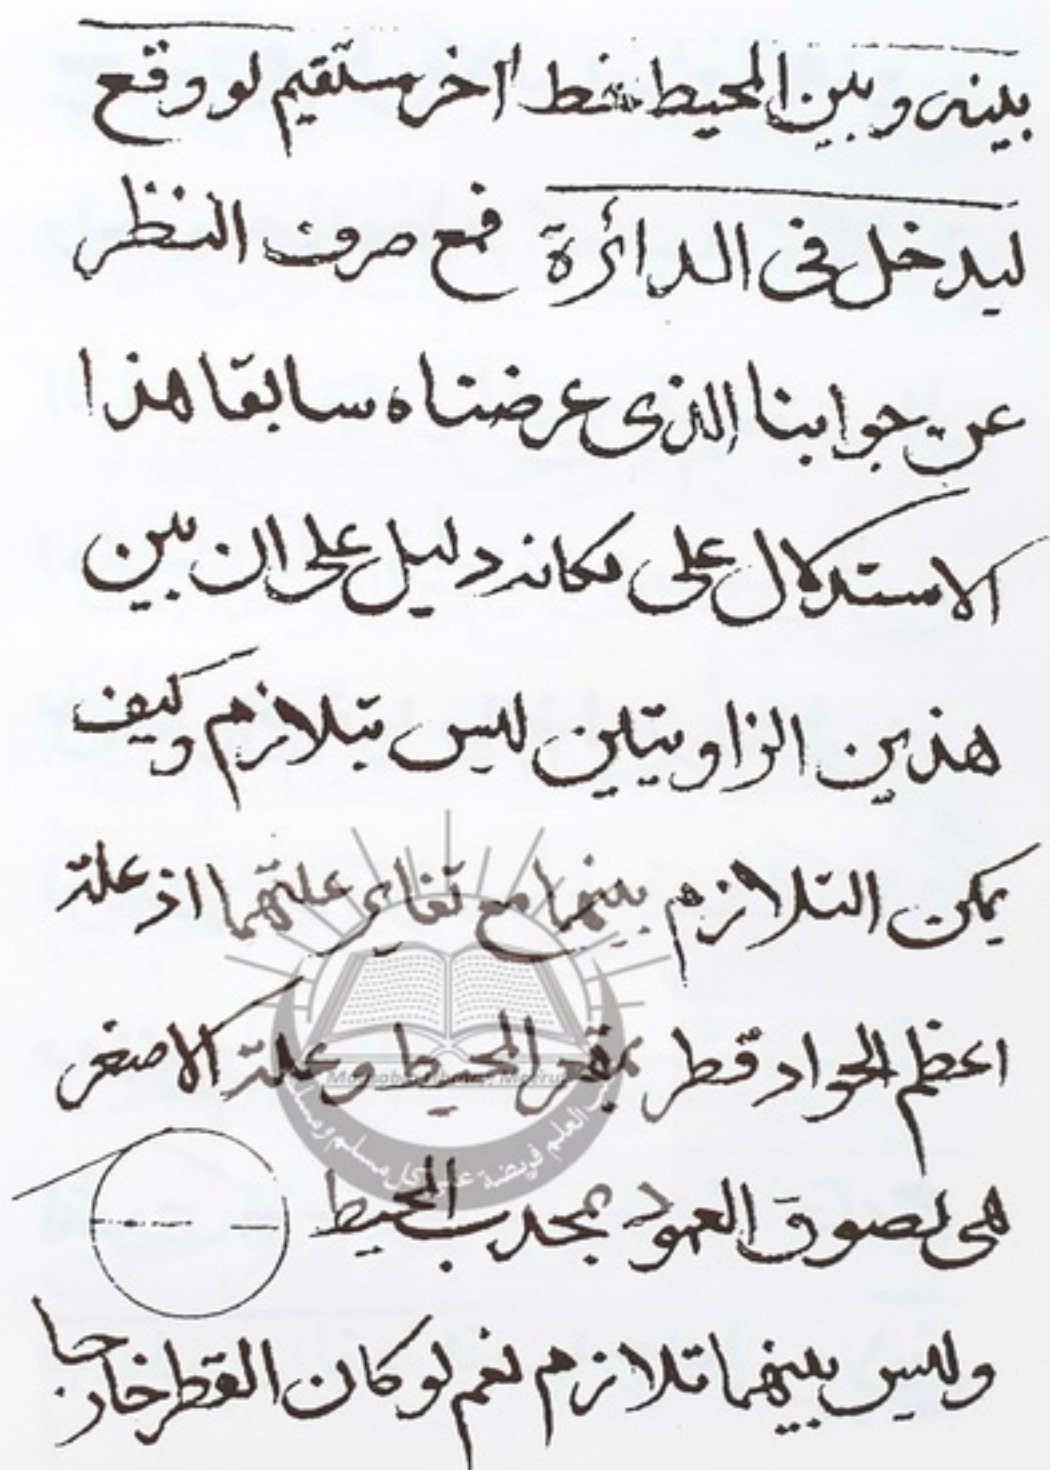 بينه وبين المحيط خط اخر مستقيم لو وقع
ليدخل في الدائرة فمع صرف النظر
عن جوابنا الذى عرضناه سابقا هذا
الاستدلال على مكانه دليل على ان بين
هذين الزاويتين ليس بتلازم وكيف
يمكن التلازم بينهما مع تغاير علتهما اذ علة
اعظم الحواد قطر بمقعر المحيط وعلة الاصغر
هى لصوق العمود بمحدب المحيط
وليس بينهما تلازم نعم لو كان القطر خارجا
العلم فريضة على كل مسلم ومسلمة